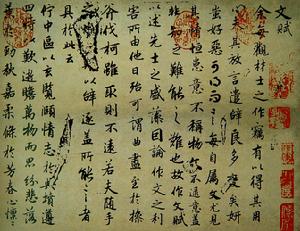 文賦
余每觀材士之作竊有以得其用
心夫其放言遣辭良多變矣妍
蚩好惡可得而言每自屬文尤見
其情恒患意不稱物文不逮意盖
非知之難能之難也故作文賦
以述先士之盛藻因論作文之利
害所由他日殆可謂曲盡至於操
斧伐柯雖取則不遠若夫隨手
之變良難以辭逐盖所能言之者
具於此云
佇中區以玄覽頤情志於典墳遵
四時歎逝瞻萬物而思紛悲落
葉於勁秋嘉柔條於芳春心懍